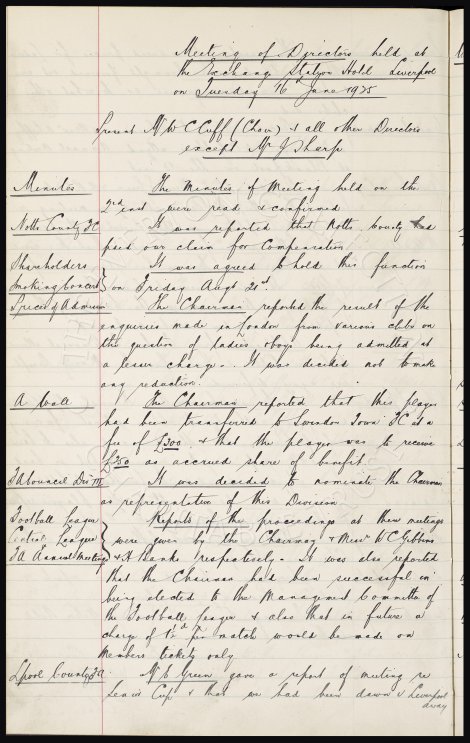 Meeting of Directors held at
the Exchange Station Hotel Liverpool
on Tuesday 16th June 1925
Present Mr W C Cuff (Chair) & all other Directors
except Mr J Sharp
Minutes The Minutes of Meeting held on the
2nd inst were read & confirmed
Notts County FC It was reported that Notts County had
paid our claim for Compensation
Shareholders It was agreed to hold this function
Smoking Concert on Friday Augt 21st.
Prices of Admission The Chairman reported the result of the
enquiries made in London from various clubs on
the question of ladies & boys being admitted at
a lesser charge. It was decided not to make
any reduction.
A Wall The Chairman reported that this player
had been transferred to Swindon Town FC at a
fee of £200 & that the player was to receive
£250 as accrued share of benefit.
FA Council Div III It was decided to nominate the Chairman
as representative of this Division
Football League Reports of the proceedings at these meetings
Central League were given by the Chairman & Messrs W C Gibbins
FA Annual Meetings & H Banks respectively. It was also reported
that the Chairman had been successful in
being elected to the Management Committee of
the Football League & also that in future a
charge of 1½d per match would be made on
Members tickets only
Lpool County FA Mr Green gave a report of meeting re
Senior Cup & that we had been drawn v Liverpool
away